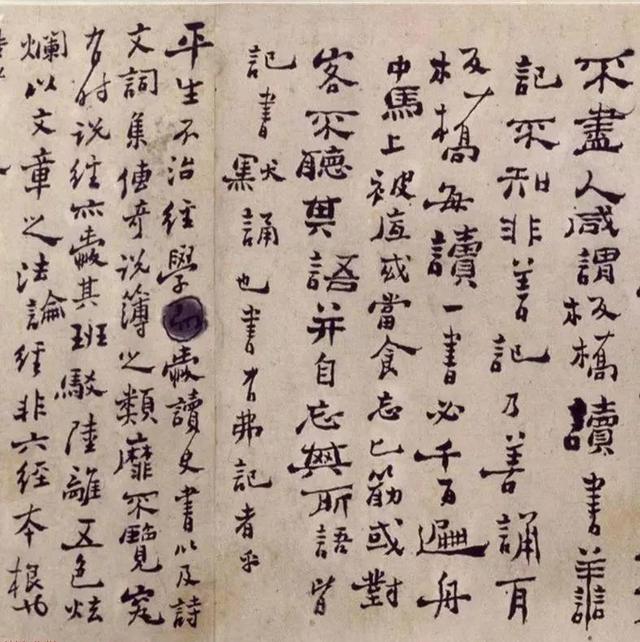 不盡人咸謂板橋讀書譱
記不知非善記乃善誦耳
板橋每讀一書必千百遍舟
中馬上被底或當食忘匕筯或對
客不聽其語并自忘所語皆
記書默誦也書有弗記者乎
平生不治經學愛讀史書以及詩
文詞集傳奇说簿之類靡不覽究
有时说經亦愛其班駁陸離五色炫
爛以文章之法論經非六経本根也